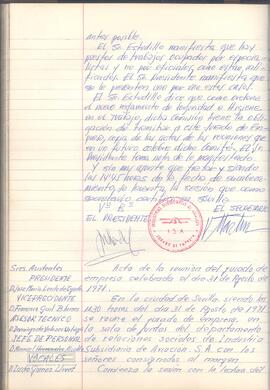 antes posible.
El Sr. Estudillo manifiesta que hay
puestos de trabajos ocupados por especia-
listas y no por oficiales, como están cali-
ficados. El Sr. Presidente manifiesta que
se le presenten uno por uno estos casos.
El Sr. Estudillo dice que como ordena
el nuevo reglamento de Seguridad e Higiene
en el trabajo, dicha comisión tiene la obli-
gación de remitir a este Jurado de Em-
presa, copia de las actas de las reuniones que
en un futuro celebre dicho Comité. El Sr.
Presidente toma nota de lo manifestado.
Y sin más asunto que tratar y siendo
las horas de la fecha de encabeza-
miento, se levanta la sesión que como
secretario certifico en Sevilla
Vº Bº
EL SECRETARIO
EL PRESIDENTE
Sres. Asistentes
PRESIDENTE
D. José María
VICEPRESIDENTE
D. Francisco
ASESOR TECNICO
D. Domingo de
JEFE DE PERSONAL
D. Hernández
VOCALES
D. Gómez
Acta de la reunión del jurado de
empresa celebrada el día 31 de Agosto de
1971.
En la ciudad de Sevilla siendo las
14,30 horas del día 31 de Agosto de 1971
se reúne el jurado de empresa, en
la sala de juntas del departamento
de relaciones sociales de Industria
Subsidiaria de Aviación S.A. con los
señores consignados al margen.
Comienza la sesión con la lectura